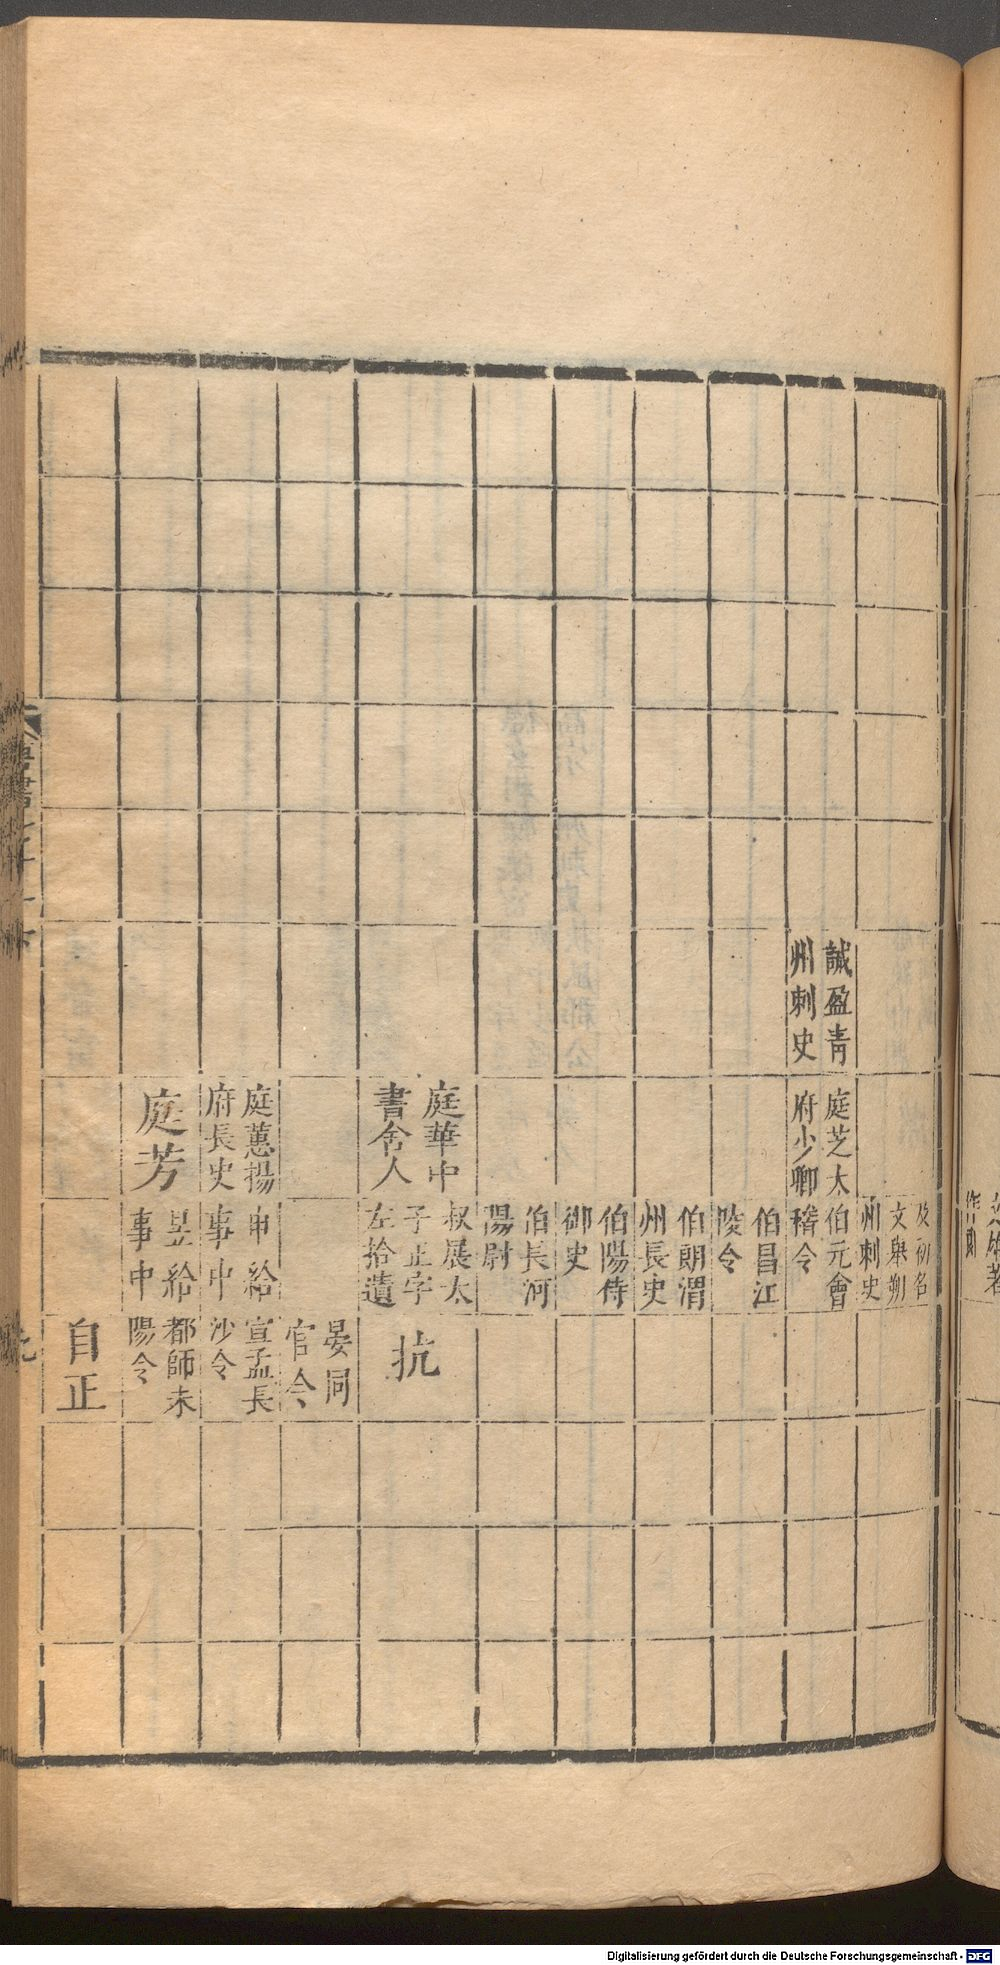 及初名
文舉朔
州刺史
誠盈青
州刺史
庭芝太
府少卿
伯元會
稽令
伯昌江
陵令
伯朗渭
州長史
伯陽侍
御史
伯長河
陽尉
庭華中
書舍人
叔展太
子正字
左拾遺
抗
晏同
官令
庭蕙揚
府長史
申給
事中
宣孟長
沙令
庭芳
昱給
事中
都師耒
陽令
自正
Digitalisierung gefördert durch die Deutsche Forschungsgemeinschaft - DFG